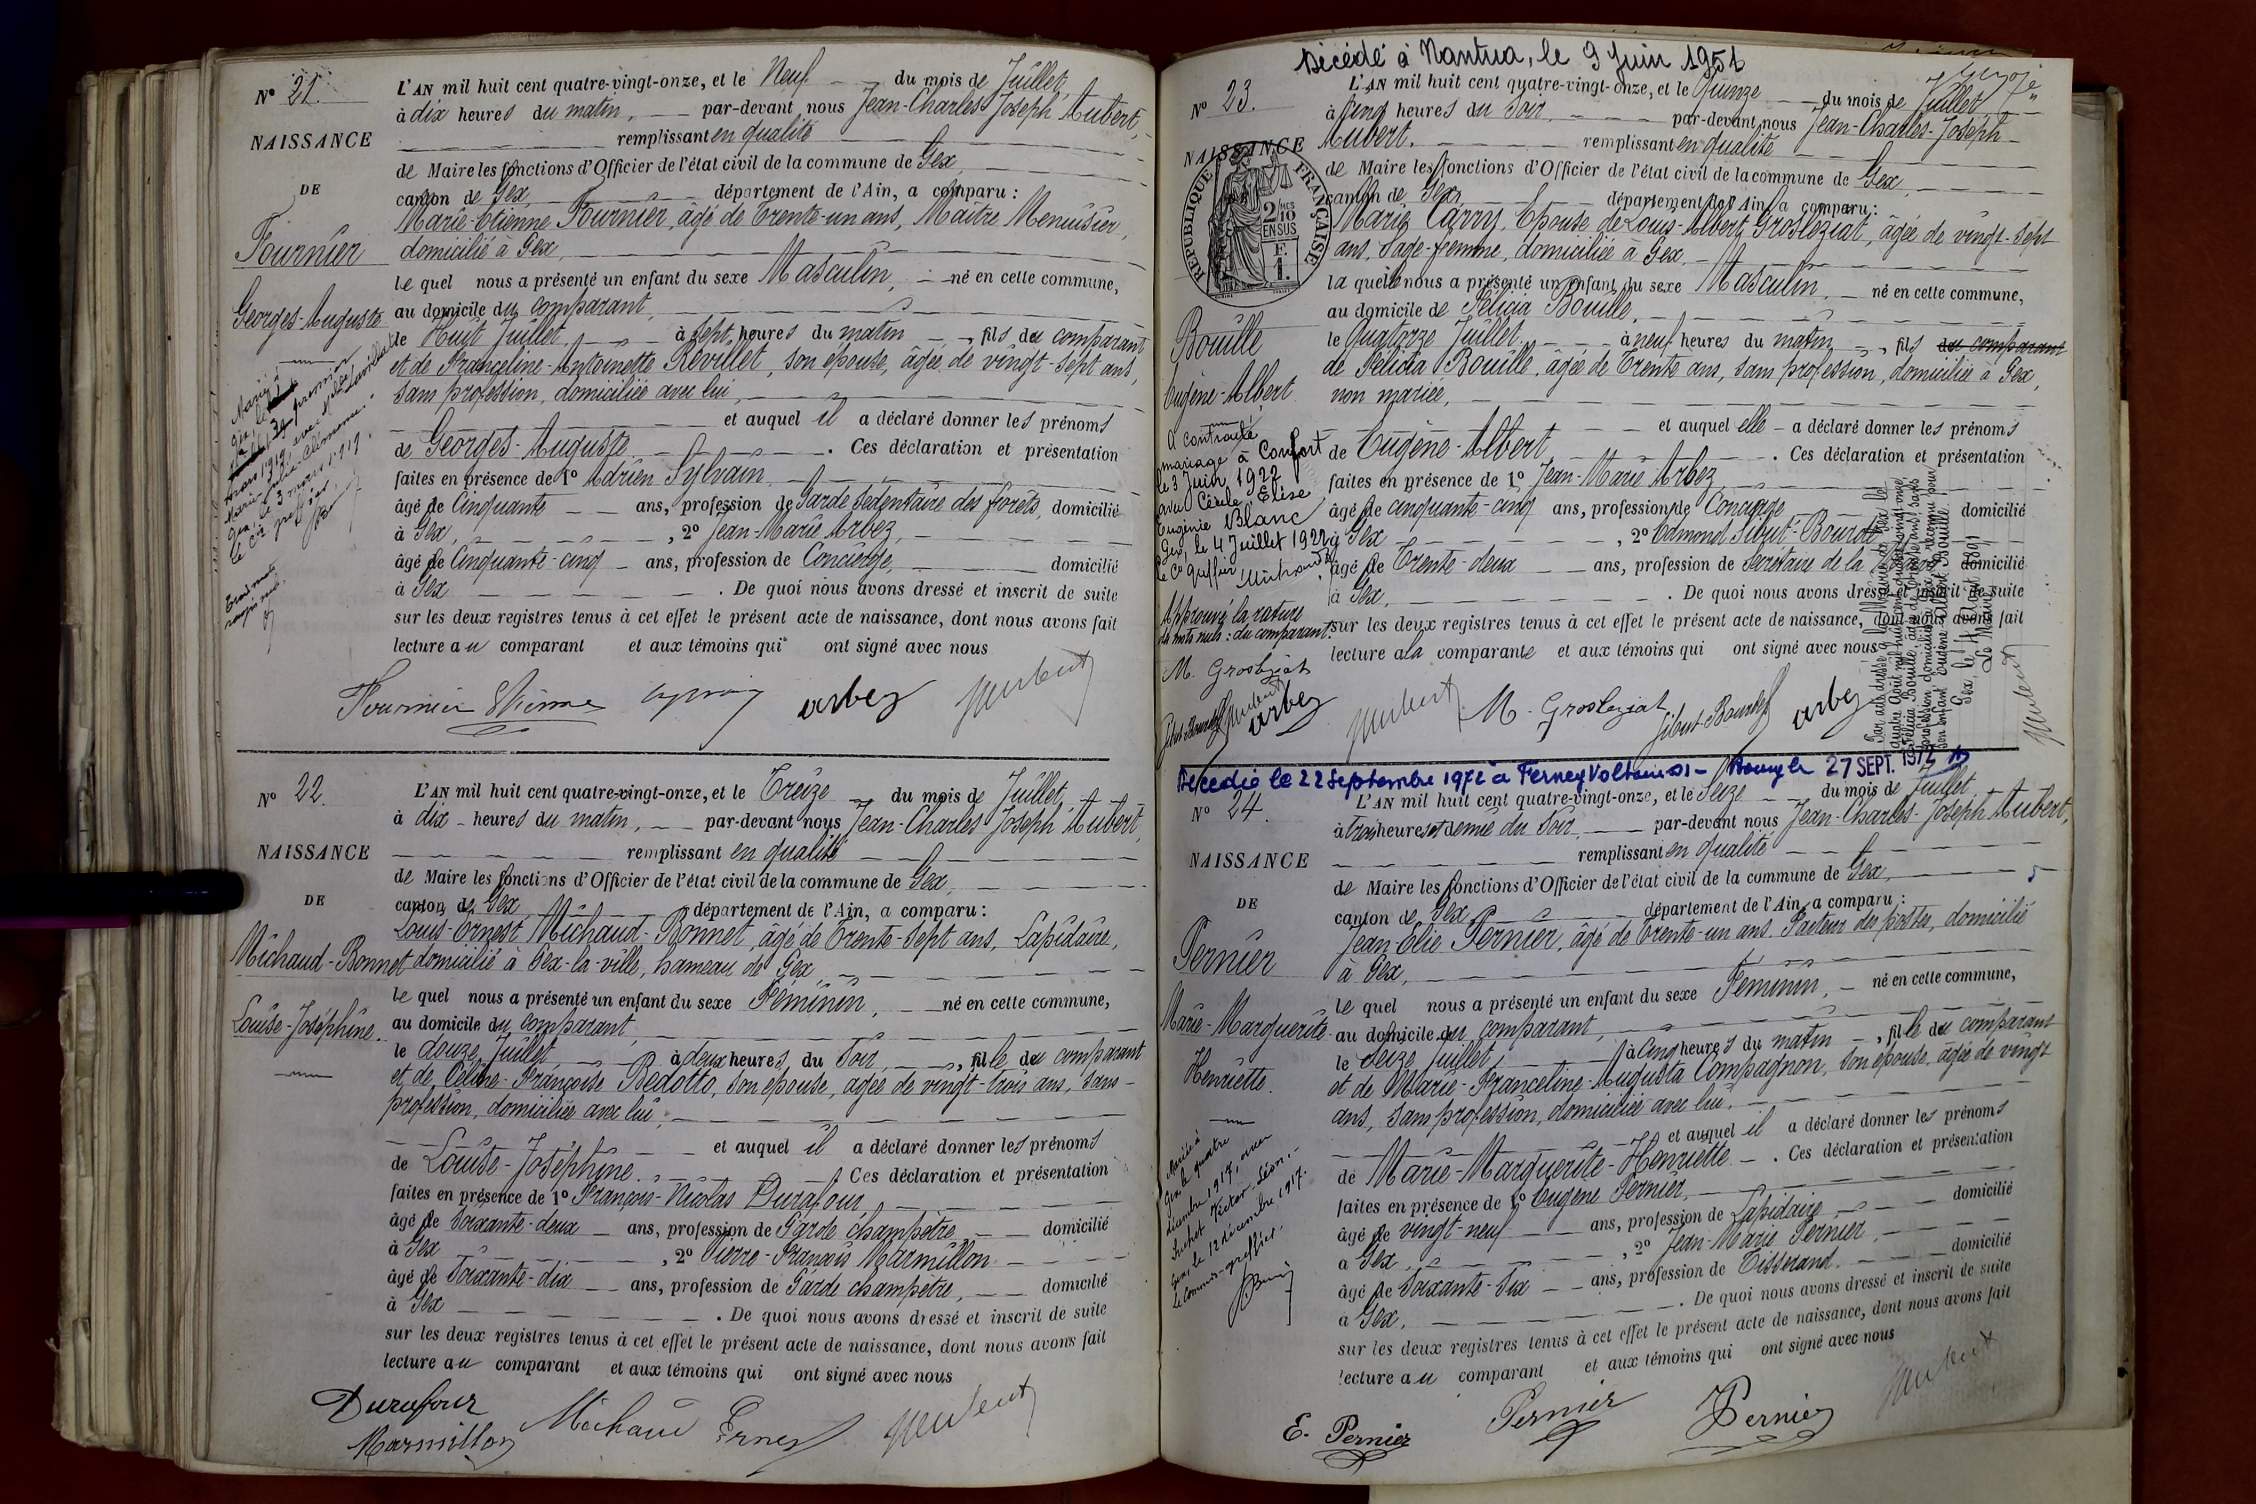 N° 21.
NAISSANCE
DE
Fournier
Georges-Auguste
L'AN mil huit cent quatre-vingt-onze, et le Neuf du mois de Juillet,
à dix heures du matin, par-devant nous Jean-Charles-Joseph Aubert,
remplissant en qualité
de Maire les fonctions d'Officier de l'état civil de la commune de Gex,
canton de Gex, département de l'Ain, a comparu :
Marie-Etienne Fournier, âgé de Trente-un ans, Maître Menuisier,
domicilié à Gex,
le quel nous a présenté un enfant du sexe Masculin, né en cette commune,
au domicile du comparant,
le Huit Juillet, à sept heures du matin, fils du comparant
et de Franceline-Antoinette Révillet, son épouse, âgée de vingt-sept ans,
sans profession, domiciliée avec lui,
et auquel il a déclaré donner les prénoms
de Georges-Auguste. Ces déclaration et présentation
faites en présence de 1° Adrien Sylvain,
âgé de Cinquante ans, profession de Garde sédentaire des forêts, domicilié
à Gex, 2° Jean-Marie Arbez,
âgé de Cinquante-cinq ans, profession de Concierge, domicilié
à Gex. De quoi nous avons dressé et inscrit de suite
sur les deux registres tenus à cet effet le présent acte de naissance, dont nous avons fait
lecture au comparant et aux témoins qui ont signé avec nous
Fournier Etienne arbez Aubert
N° 22.
NAISSANCE
DE
Michaud-Bonnet
Louise-Joséphine.
L'AN mil huit cent quatre-vingt-onze, et le Treize du mois de Juillet,
à dix heures du matin, par-devant nous Jean-Charles-Joseph Aubert,
remplissant en qualité
de Maire les fonctions d'Officier de l'état civil de la commune de Gex,
canton de Gex, département de l'Ain, a comparu :
Louis-Ernest Michaud-Bonnet, âgé de Trente-sept ans, Lapidaire,
domicilié à Gex-la-ville, hameau de Gex,
le quel nous a présenté un enfant du sexe Féminin, né en cette commune,
au domicile du comparant,
le douze Juillet à deux heures du Soir, fille du comparant
et de Céline-Françoise Bedotto, son épouse, âgée de vingt-trois ans, sans
profession, domiciliée avec lui,
et auquel il a déclaré donner les prénoms
de Louise-Joséphine. Ces déclaration et présentation
faites en présence de 1° François-Nicolas Durafour,
âgé de Soixante-deux ans, profession de Garde champêtre, domicilié
à Gex, 2° Pierre-François Marmillon
âgé de Soixante-dix ans, profession de Garde champêtre, domicilié
à Gex. De quoi nous avons dressé et inscrit de suite
sur les deux registres tenus à cet effet le présent acte de naissance, dont nous avons fait
lecture au comparant et aux témoins qui ont signé avec nous
Durafour
Marmillon Michaud Ernest Aubert
Décédé à Nantua, le 9 Juin 1951
N° 23.
NAISSANCE
RÉPUBLIQUE FRANÇAISE
2/10 EN SUS
Bouille
Eugène-Albert
A contracté
mariage à Confort
le 3 Juin 1922
avec Cécile-Elise
Eugénie Blanc
Gex, le 4 Juillet 1922
Approuvé la rature
de mots nuls : du comparant.
M. Grosleziat
arbez
L'AN mil huit cent quatre-vingt-onze, et le Quinze du mois de Juillet
à cinq heures du Soir, par-devant nous Jean-Charles-Joseph
Aubert, remplissant en qualité
de Maire les fonctions d'Officier de l'état civil de la commune de Gex,
canton de Gex, département de l'Ain, a comparu :
Marie Carry, Epouse de Louis-Albert Grosleziat, âgée de vingt-sept
ans, Sage-femme, domiciliée à Gex,
la quelle nous a présenté un enfant du sexe Masculin, né en cette commune,
au domicile de Félicia Bouille,
le Quatorze Juillet, à neuf heures du matin, fils du comparant
de Félicia Bouille, âgée de Trente ans, sans profession, domiciliée à Gex,
non mariée,
et auquel elle a déclaré donner les prénoms
de Eugène-Albert. Ces déclaration et présentation
faites en présence de 1° Jean-Marie Arbez,
âgé de cinquante-cinq ans, profession de Concierge domicilié
à Gex, 2° Edmond Sibut-Bourde
âgé de Trente-deux ans, profession de Secrétaire de la domicilié
à Gex, De quoi nous avons dressé et inscrit de suite
sur les deux registres tenus à cet effet le présent acte de naissance, dont nous avons fait
lecture à la comparante et aux témoins qui ont signé avec nous
Aubert M. Grosleziat Sibut-Bourde arbez
Gex, le 4 Août 1891
Le Maire
Aubert
Décédée le 22 Septembre 1972 à Ferney Voltaire 01 - 27 SEPT. 1972
N° 24.
NAISSANCE
DE
Pernier
Marie-Marguerite
Henriette.
Mariée à
Gex le quatre
décembre 1917, avec
Suchet Victor Léon.
Gex, le 12 décembre 1917.
Le Commis-greffier.
L'AN mil huit cent quatre-vingt-onze, et le Seize du mois de Juillet,
à trois heures et demie du Soir, par-devant nous Jean-Charles-Joseph Aubert,
remplissant en qualité
de Maire les fonctions d'Officier de l'état civil de la commune de Gex,
canton de Gex, département de l'Ain, a comparu :
Jean-Elie Pernier, âgé de Trente-un ans, Facteur des postes, domicilié
à Gex,
le quel nous a présenté un enfant du sexe Féminin, né en cette commune,
au domicile du comparant,
le Seize juillet, à cinq heures du matin, fille du comparant
et de Marie-Franceline-Augusta Compagnon, son épouse, âgée de vingt
ans, sans profession, domiciliée avec lui,
et auquel il a déclaré donner les prénoms
de Marie-Marguerite-Henriette. Ces déclaration et présentation
faites en présence de 1° Eugène Pernier,
âgé de vingt-neuf ans, profession de Lapidaire, domicilié
à Gex, 2° Jean-Marie Pernier,
âgé de Soixante-six ans, profession de Tisserand, domicilié
à Gex, De quoi nous avons dressé et inscrit de suite
sur les deux registres tenus à cet effet le présent acte de naissance, dont nous avons fait
lecture au comparant et aux témoins qui ont signé avec nous
E. Pernier Pernier Pernier Aubert